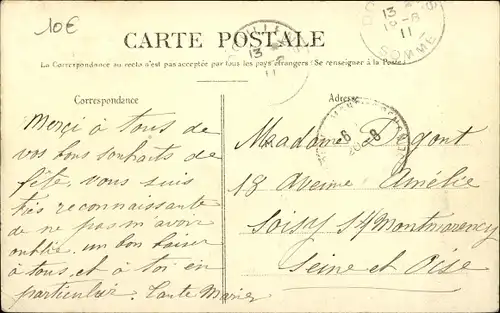 10€
CARTE POSTALE
La Correspondance au recto n'est pas acceptée par tous les pays étrangers (Se renseigner à la Poste)
Correspondance
Merçi à tous de
vos bons souhaits de
fête, vous suis
très reconnaissante
de ne pas m'avoir
oublié. un bon baiser
à tous, et à toi en
particulier. Tante Marie
Adresse
Madame Digont
18 Avenue Amélie
Soisy S/Montmorency
Seine et Oise
13
11
13
18-8
11
SOMME
6
8